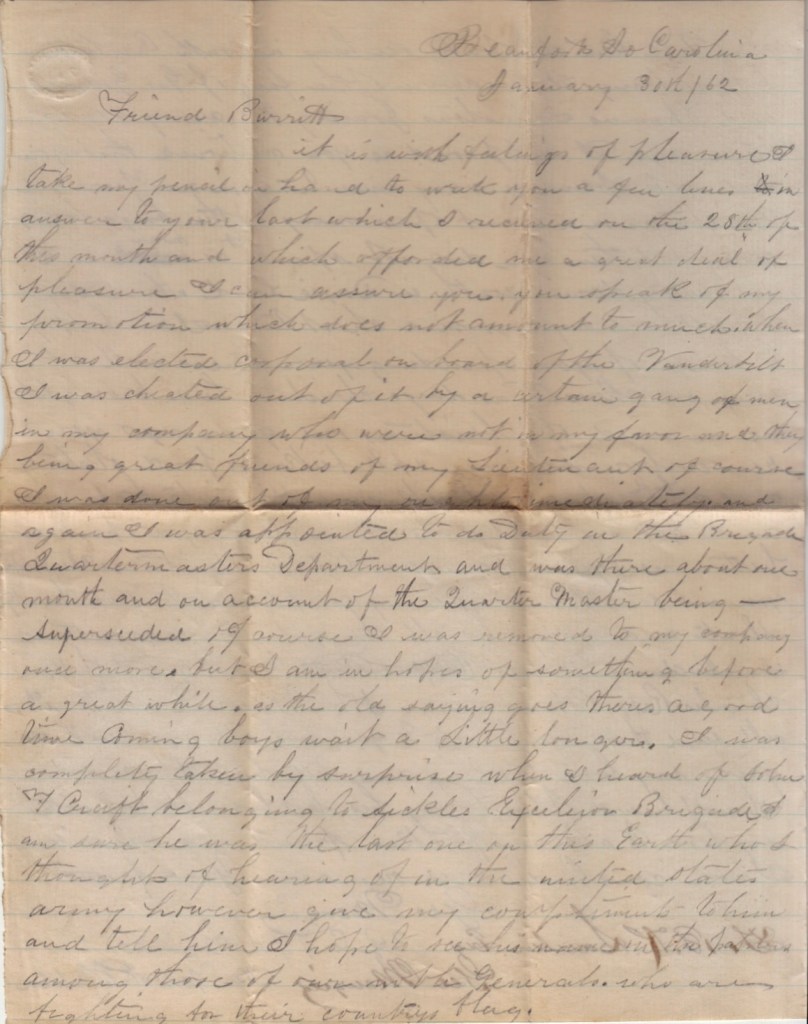 Beaufort So Carolina
January 30th/62
Friend Burritt
it is with feelings of pleasure I
take my pencil in hand to write you a few lines in
answer to your last which I received on the 28th of
this month and which afforded me a great deal of
pleasure I can assure you. you speak of my
promotion which does not amount to much. when
I was elected corporal on board of the Vanderbilt
I was cheated out of it by a certain gang of men
in my company who were not in my favor and they
being great friends of my Lieutenant of course
I was done out of my imediately. and
again I was appointed to do Duty in the Brigade
Quartermasters Department and was there about one
month and on account of the Quarter Master being —
Superseeded of course I was removed to my company
once more. but I am in hopes of something before
a great while. as the old saying goes theres a good
time Coming boys wait a Little longer. I was
completly taken by surprise when I heard of John
T Craift belonging to Sickles Excelsior Brigade I
am sure he was the last one on this Earth who I
thought of hearing of in the united states
army however give my compliment to him
and tell him I hope to see his name in the papers
among those of our noble Generals. who are
fighting for their countrys flag.